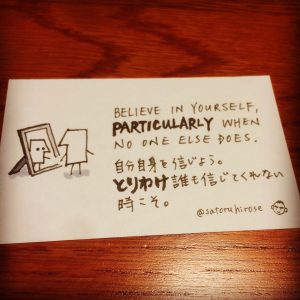 BELIEVE IN YOURSELF,
PARTICULARLY WHEN
NO ONE ELSE DOES.
自分自身を信じよう。
とりわけ誰も信じてくれない
時こそ。
@satoruhirose